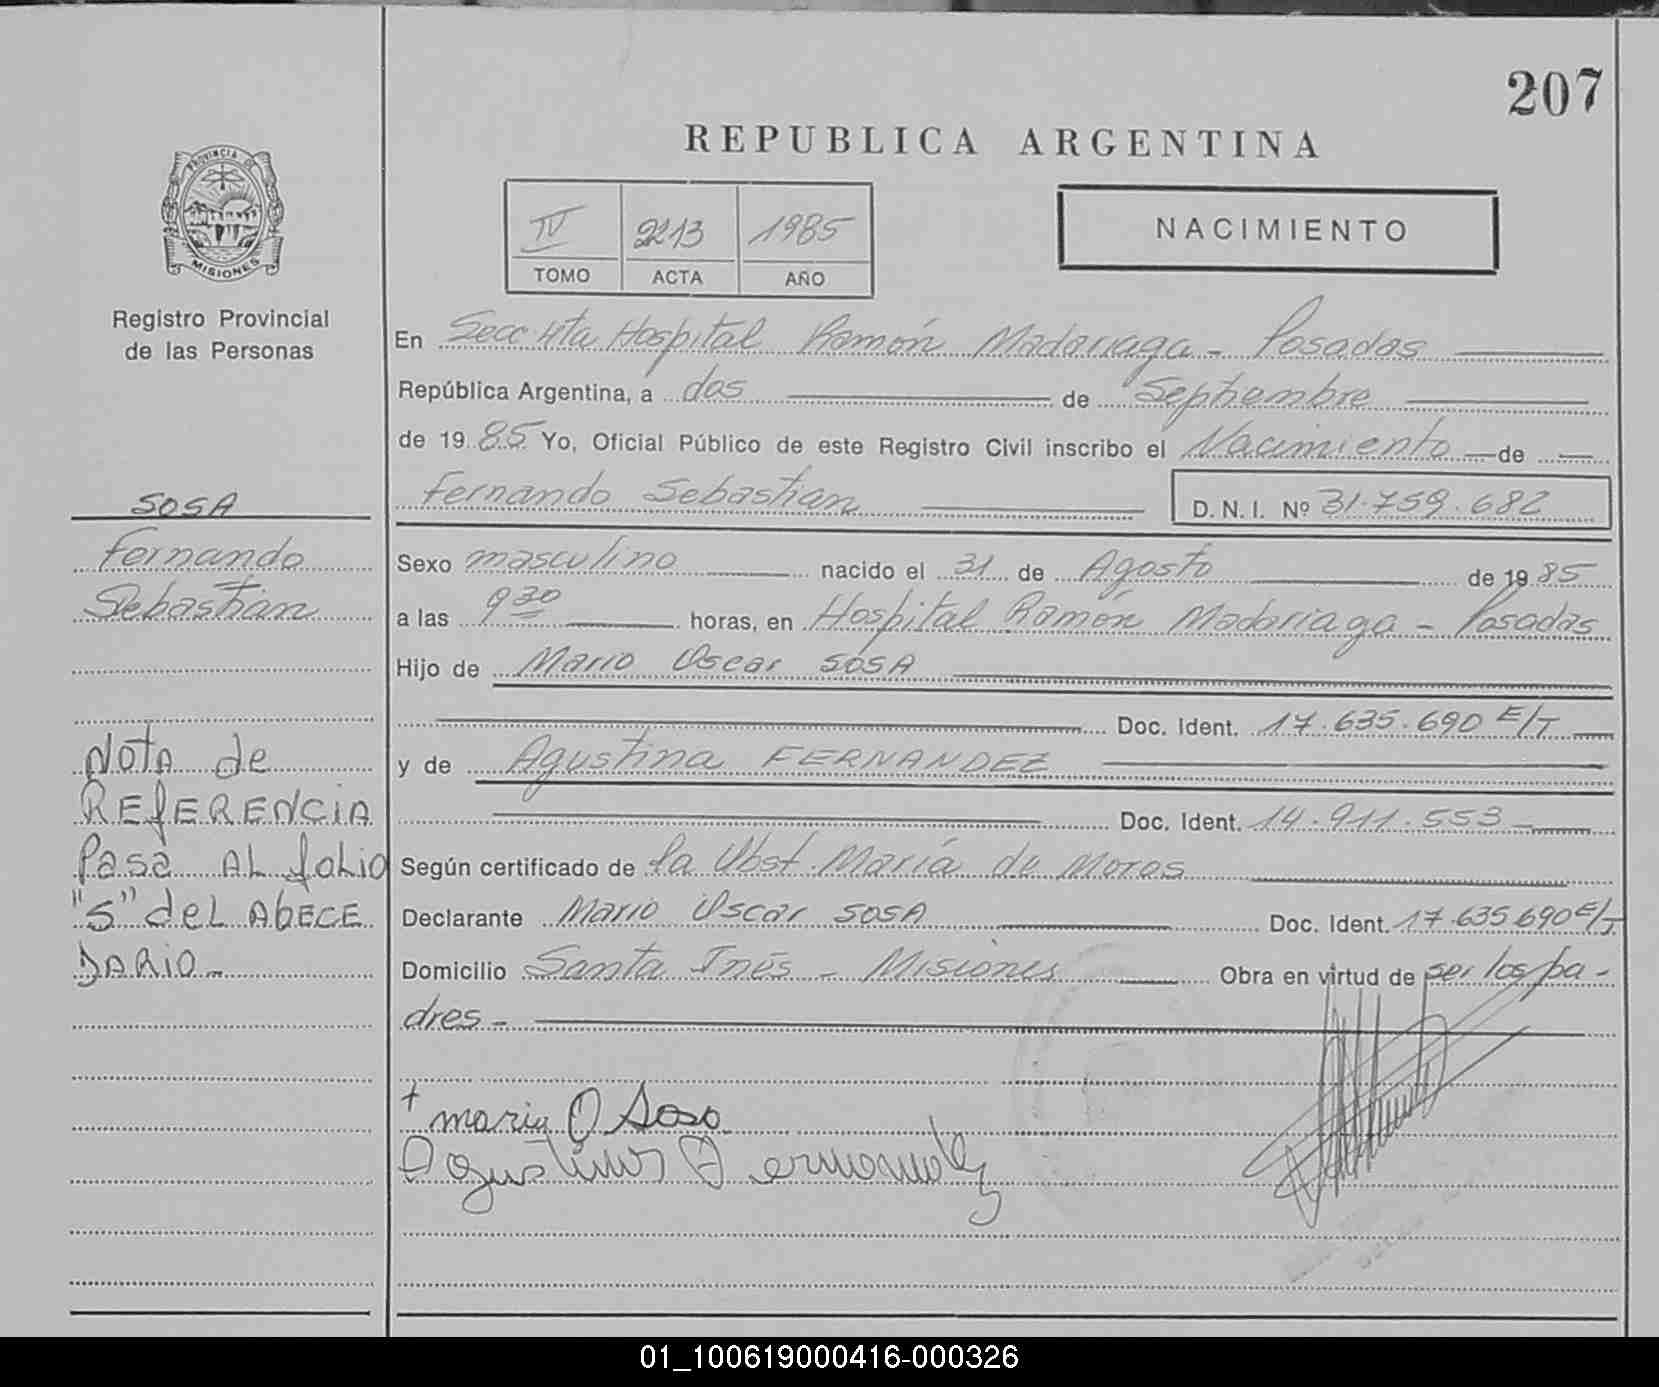 207
REPUBLICA ARGENTINA
PROVINCIA DE
MISIONES
IV 2213 1985
TOMO ACTA AÑO
NACIMIENTO
Registro Provincial
de las Personas
En Secc 4ta Hospital Ramón Madariaga - Posadas
República Argentina, a dos de Septiembre
de 1985 Yo, Oficial Público de este Registro Civil inscribo el Nacimiento de
Fernando Sebastian D. N. I. Nº 31.759.682
Sexo masculino nacido el 31 de Agosto de 1985
a las 9 30 horas, en Hospital Ramón Madariaga - Posadas
Hijo de Mario Oscar SOSA
Doc. Ident. 17.635.690 E/T
y de Agustina FERNANDEZ
Doc. Ident. 14.911.553
Según certificado de la Obst. María de Moras
Declarante Mario Oscar SOSA Doc. Ident. 17.635.690 E/T
Domicilio Santa Inés - Misiones Obra en virtud de ser los pa-
dres -
SOSA
Fernando
Sebastian
Nota de
REfERENCiA
Pasa AL foLio
"S" deL AbECE
DARIO -
+ mario O Sosa
Agustina Fernandez
01_100619000416-000326